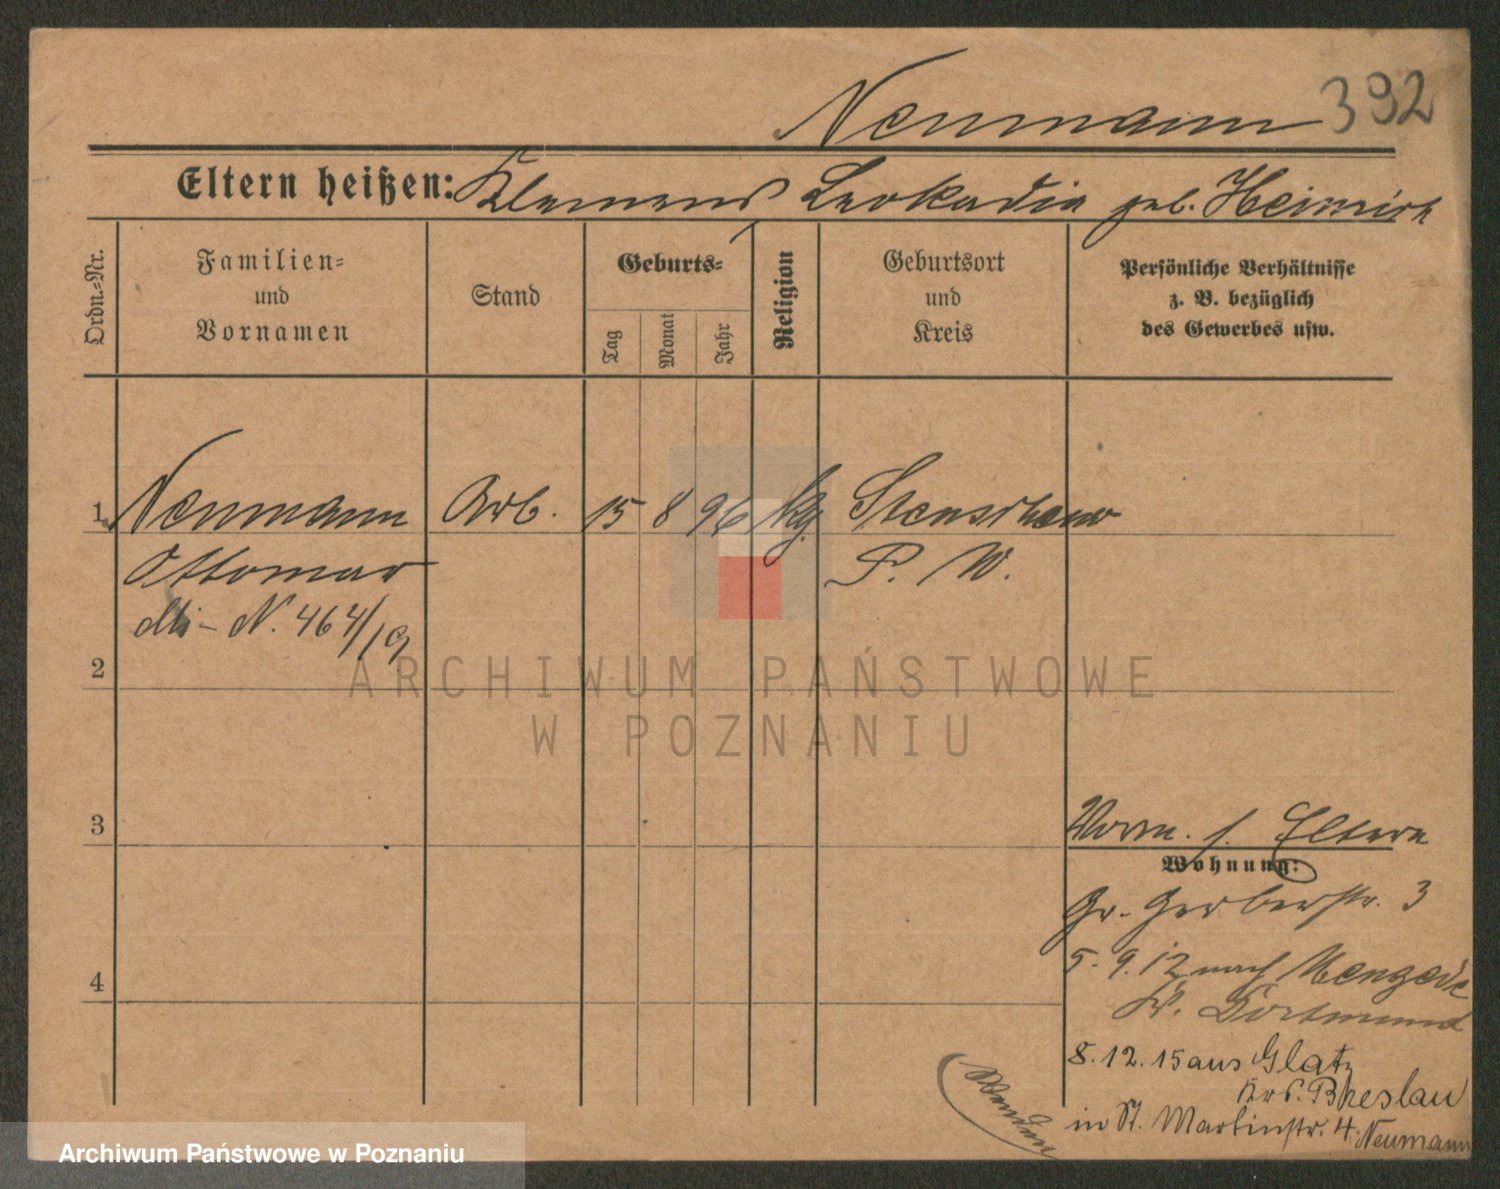 Neumann 392
Eltern heißen: Klemens Leokadia geb. Heinrich
Ordn.-Nr.
Familien-
und
Vornamen
Stand
Geburts-
Tag
Monat
Jahr
Religion
Geburtsort
und
Kreis
Persönliche Verhältnisse
z. B. bezüglich
des Gewerbes usw.
1 Neumann Arb. 15 8 96 kg. Stenschewo
Ottomar P. W.
N. 464/19
2
ARCHIWUM PAŃSTWOWE
W POZNANIU
3
Vorm. s. Eltern
Wohnung:
Gr. Gerberstr. 3
4
5.9.12 nach Mengede
Kr. Dortmund
8.12.15 aus Glatz
Krs. Breslau
in St. Martinstr. 4. Neumann
Wenden
Archiwum Państwowe w Poznaniu